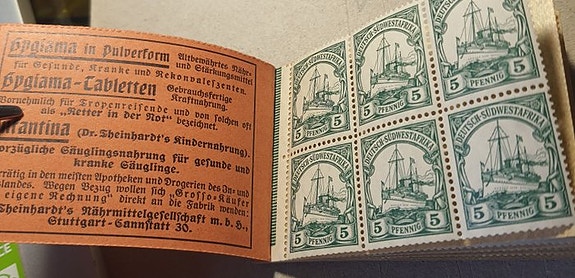 Hygiama in Pulverform Altbewährtes Nähr-
und Stärkungsmittel
für Gesunde, Kranke und Rekonvaleszenten.
Hygiama-Tabletten Gebrauchsfertige
Kraftnahrung.
Vornehmlich für Tropenreisende und von solchen oft
als „Retter in der Not" bezeichnet.
Infantina (Dr. Theinhardt's Kindernahrung).
Vorzügliche Säuglingsnahrung für gesunde und
kranke Säuglinge.
Vorrätig in den meisten Apotheken und Drogerien des In- und
Auslandes. Wegen Bezug wollen sich „Grosso-Käufer
eigene Rechnung" direkt an die Fabrik wenden:
Theinhardt's Nährmittelgesellschaft m. b. H.,
Stuttgart-Cannstatt 30.
DEUTSCH-SÜDWESTAFRIKA
5 PFENNIG 5
DEUTSCH-SÜDWESTAFRIKA
5 PFENNIG 5
DEUTSCH-SÜDWESTAFRIKA
5 PFENNIG 5
DEUTSCH-SÜDWESTAFRIKA
5 PFENNIG 5
DEUTSCH-SÜDWESTAFRIKA
5 PFENNIG 5
DEUTSCH-SÜDWESTAFRIKA
5 PFENNIG 5